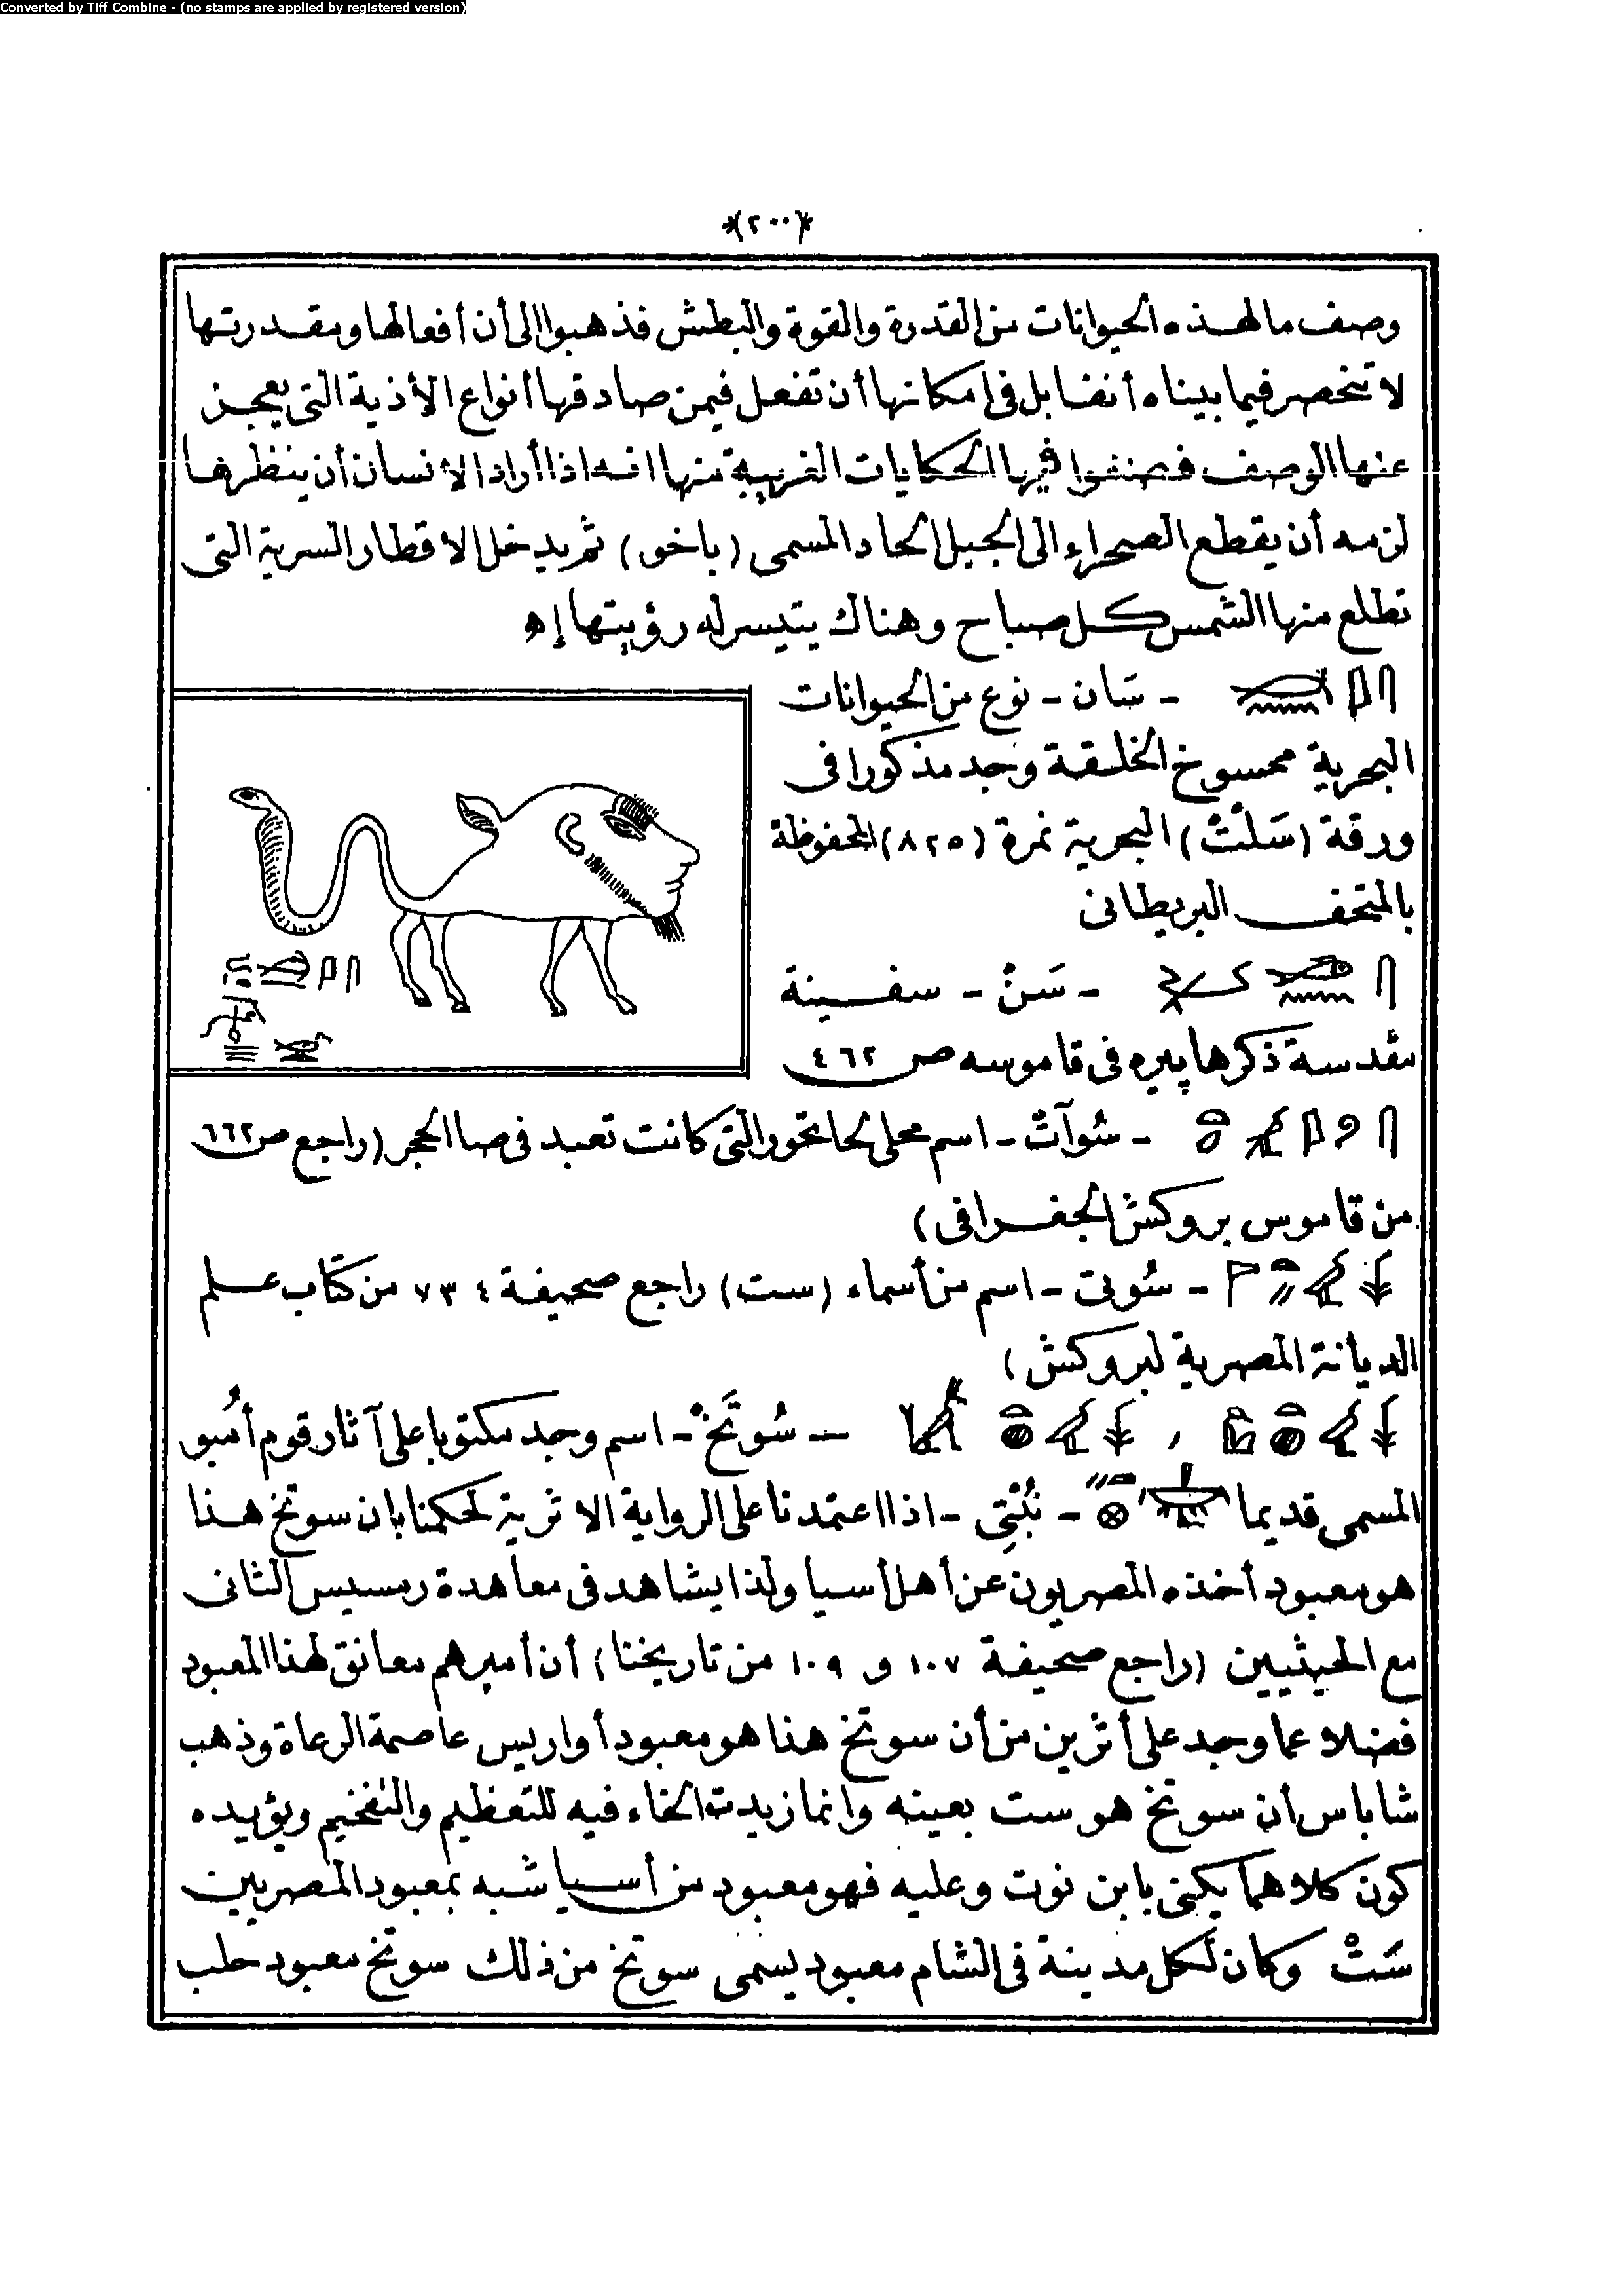 Converted by Tiff Combine - (no stamps are applied by registered version)
*(٢٠٠)*
وصف ما لهذه الحيوانات من القدرة والقوة والبطش فذهبوا الى أن أفعالها ومقدرتها
لا تنحصر فيما بيناه أنفا بل فى إمكانها أن تفعل فيمن صادقها أنواع الأذية التى يعجز
عنها الوصف فصنفوا فيها الحكايات الغريبة منها انه اذا أراد الانسان أن ينظرها
لزمه أن يقطع الصحراء الى الجبل الحاد المسمى (باخو) ثم يدخل الاقطار السرية التى
تطلع منها الشمس كل صباح وهناك يتيسر له رؤيتها إه
- سَان - نوع من الحيوانات
البحرية ممسوخ الخلقة وجد مذكورا فى
ورقة (سَلْتْ) البحرية نمرة (٨٢٥) المحفوظة
بالمتحف البريطانى
- سَنْ - سفينة
مقدسة ذكرها پيره فى قاموسه ص ٤٦٢
- سُوآتْ - اسم محلى لحاتحور التى كانت تعبد فى صا الحجر (راجع ص ٦٦٢
من قاموس بروكش الجغرافى)
- سُوتى - اسم من أسماء (ست) راجع صحيفة ٧٣٤ من كتاب علم
الديانة المصرية لبروكش)
، - سُوتَخْ - اسم وجد مكتوبا على آثار قوم أمبو
المسمى قديما - نُبْتِى - اذا اعتمدنا على الرواية الاثرية لحكمنا بان سوتخ هذا
هو معبود أخذه المصريون عن أهل أسيا ولذا يشاهد فى معاهدة رمسيس الثانى
مع الحيثيين (راجع صحيفة ١٠٧ و ١٠٩ من تاريخنا) أن أميرهم معانق لهذا المعبود
فضلا عما وجد على أثرين من أن سوتخ هذا هو معبود أواريس عاصمة الرعاة وذهب
شاباس أن سوتخ هو ست بعينه وانما زيدت الخاء فيه للتعظيم والتفخيم ويؤيده
كون كلاهما يكنى بابن نوت وعليه فهو معبود من أسيا شبه بمعبود المصريين
سَتْ وكان لكل مدينة فى الشام معبود يسمى سوتخ من ذلك سوتخ معبود حلب